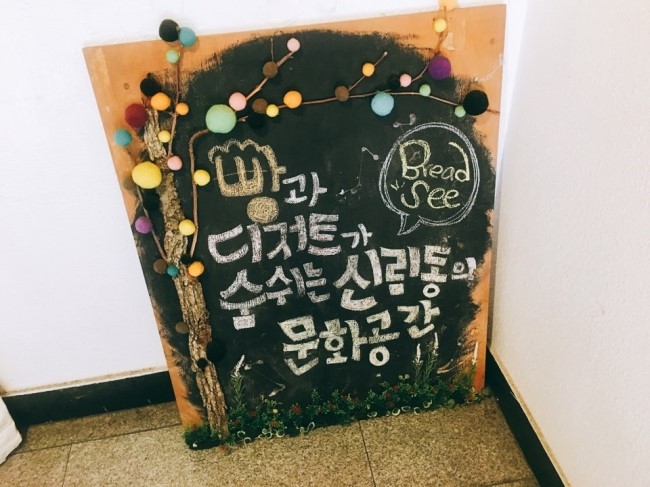 Bread
See
빵과
디저트가
숨쉬는 신림동의
문화공간